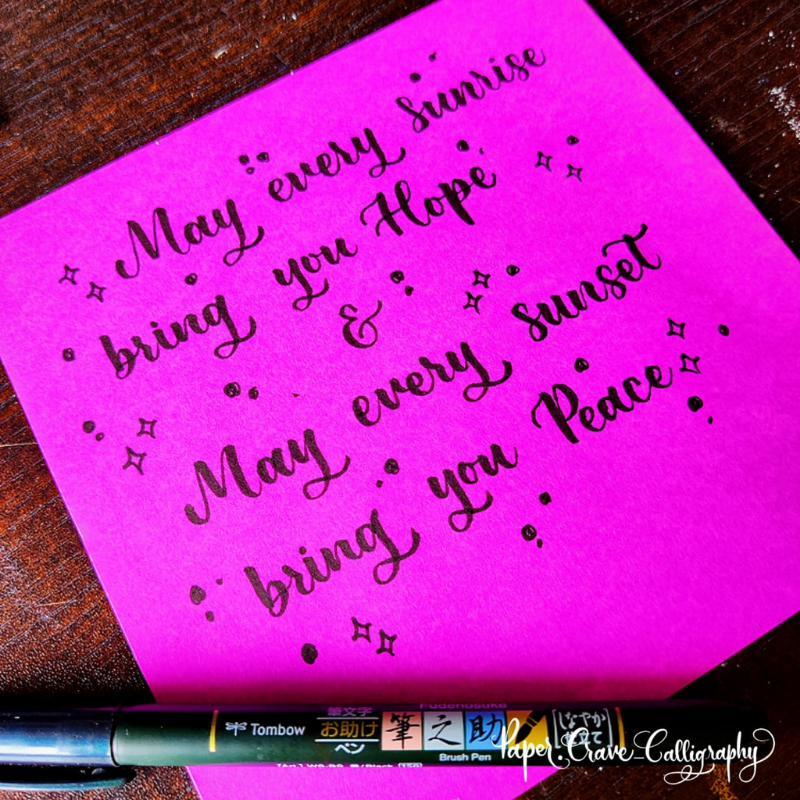 May every sunrise
bring you Hope
&
May every sunset
bring you Peace
Fudenosuke
筆文字
Tombow お助け 筆之助 しなやか
ペン 仕立て
Brush Pen
Paper_Crave_Calligraphy